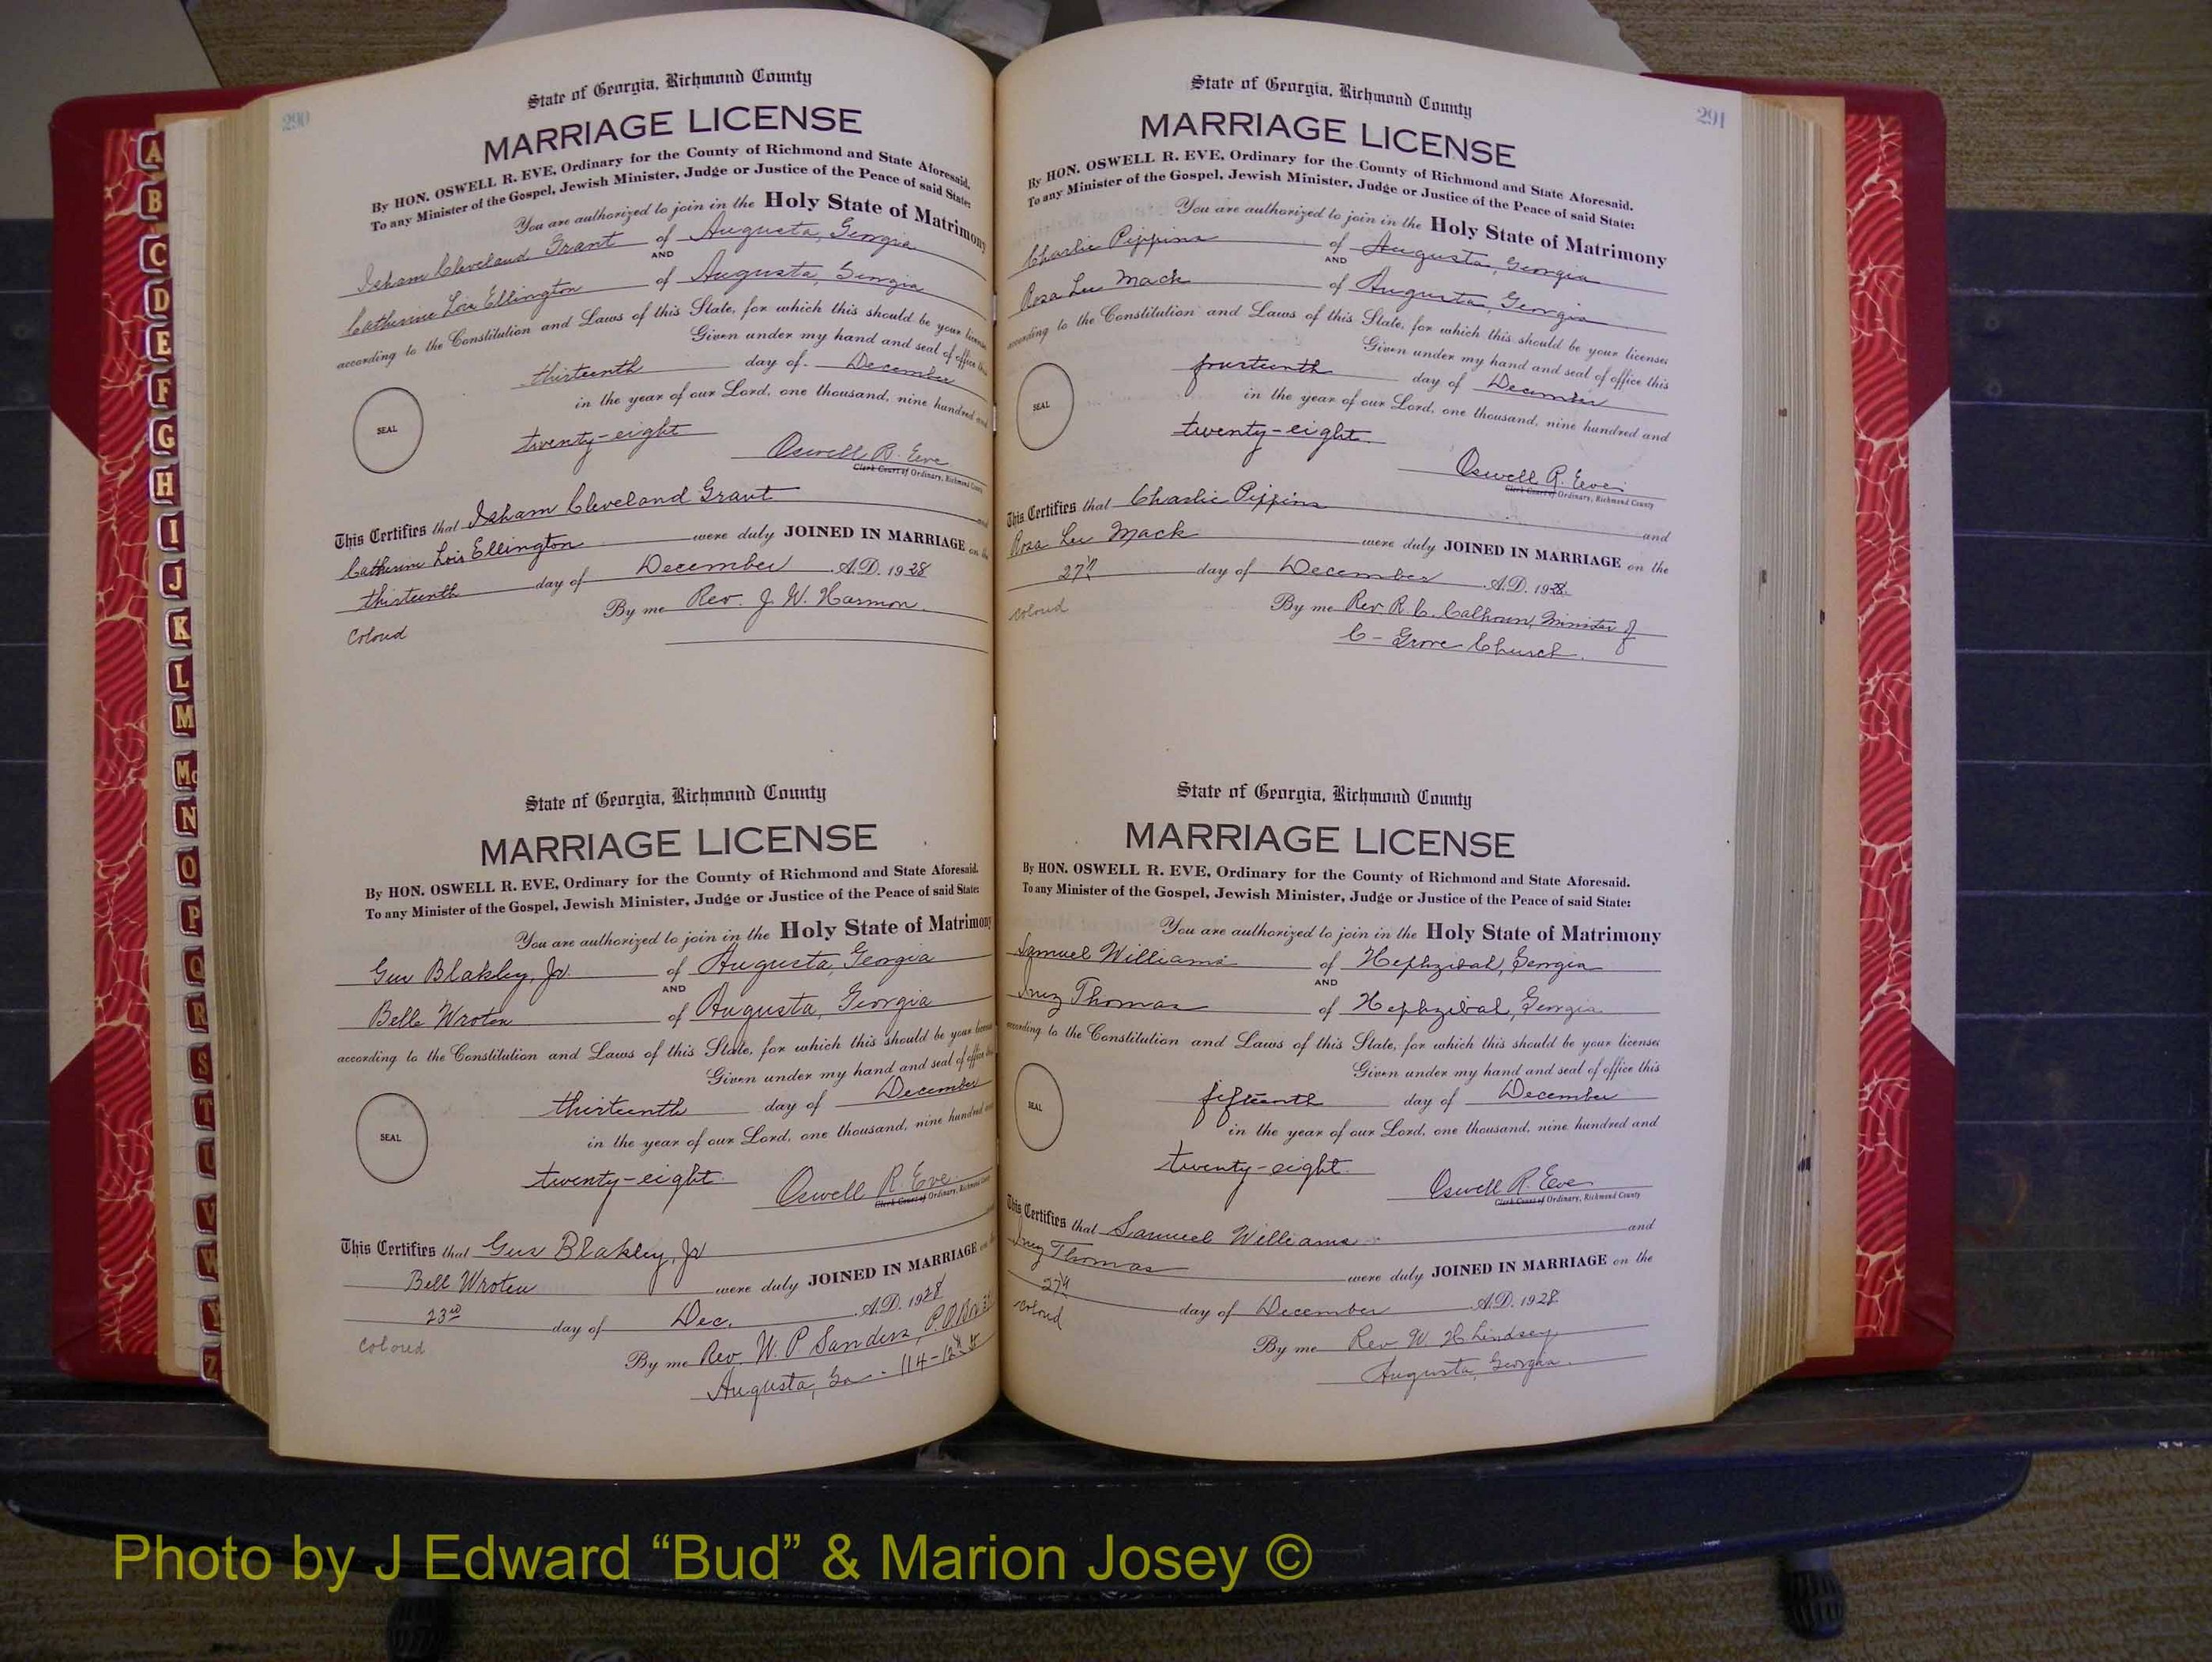 290
State of Georgia, Richmond County
MARRIAGE LICENSE
By HON. OSWELL R. EVE, Ordinary for the County of Richmond and State Aforesaid.
To any Minister of the Gospel, Jewish Minister, Judge or Justice of the Peace of said State:
You are authorized to join in the Holy State of Matrimony
Isham Cleveland Grant of Augusta, Georgia
AND
Catherine Lois Ellington of Augusta, Georgia
according to the Constitution and Laws of this State, for which this should be your license
Given under my hand and seal of office this
thirteenth day of December
in the year of our Lord, one thousand, nine hundred and
SEAL
twenty-eight
Oswell R. Eve
Clerk Court of Ordinary, Richmond County
This Certifies that Isham Cleveland Grant and
Catherine Lois Ellington were duly JOINED IN MARRIAGE on the
thirteenth day of December A.D. 1928
By me Rev. J. W. Harmon
Colored
State of Georgia, Richmond County
MARRIAGE LICENSE
By HON. OSWELL R. EVE, Ordinary for the County of Richmond and State Aforesaid.
To any Minister of the Gospel, Jewish Minister, Judge or Justice of the Peace of said State:
You are authorized to join in the Holy State of Matrimony
Gus Blakley, Jr of Augusta, Georgia
AND
Belle Wroten of Augusta, Georgia
according to the Constitution and Laws of this State, for which this should be your license
Given under my hand and seal of office this
thirteenth day of December
in the year of our Lord, one thousand, nine hundred and
SEAL
twenty-eight.
Oswell R. Eve
Clerk Court of Ordinary, Richmond County
This Certifies that Gus Blakley, Jr
Bell Wroten were duly JOINED IN MARRIAGE on the
23rd day of Dec. A.D. 1928
Colored
By me Rev. W. P. Sanders, P.O. Box
Augusta, Ga - 114-12th St
291
State of Georgia, Richmond County
MARRIAGE LICENSE
By HON. OSWELL R. EVE, Ordinary for the County of Richmond and State Aforesaid.
To any Minister of the Gospel, Jewish Minister, Judge or Justice of the Peace of said State:
You are authorized to join in the Holy State of Matrimony
Charlie Pippins of Augusta, Georgia
AND
Rosa Lee Mack of Augusta, Georgia
according to the Constitution and Laws of this State, for which this should be your license
Given under my hand and seal of office this
fourteenth day of December
in the year of our Lord, one thousand, nine hundred and
SEAL
twenty-eight.
Oswell R. Eve
Clerk Court of Ordinary, Richmond County
This Certifies that Charlie Pippins
Rosa Lee Mack and
were duly JOINED IN MARRIAGE on the
27th day of December A.D. 1928.
Colored
By me Rev. R. C. Calhoun, Minister of
C- Grove Church.
State of Georgia, Richmond County
MARRIAGE LICENSE
By HON. OSWELL R. EVE, Ordinary for the County of Richmond and State Aforesaid.
To any Minister of the Gospel, Jewish Minister, Judge or Justice of the Peace of said State:
You are authorized to join in the Holy State of Matrimony
Samuel Williams of Hephzibah, Georgia
AND
Inez Thomas of Hephzibah, Georgia
according to the Constitution and Laws of this State, for which this should be your license
Given under my hand and seal of office this
fifteenth day of December
in the year of our Lord, one thousand, nine hundred and
SEAL
twenty-eight.
Oswell R. Eve
Clerk Court of Ordinary, Richmond County
This Certifies that Samuel Williams and
Inez Thomas were duly JOINED IN MARRIAGE on the
27th day of December A.D. 1928
Colored
By me Rev W. H Lindsey
Augusta, Georgia.
A
B
C
D
E
F
G
H
I
J
K
L
M
Mc
N
O
P
Q
R
S
T
U
V
W
Y
Z
Photo by J Edward “Bud” & Marion Josey ©